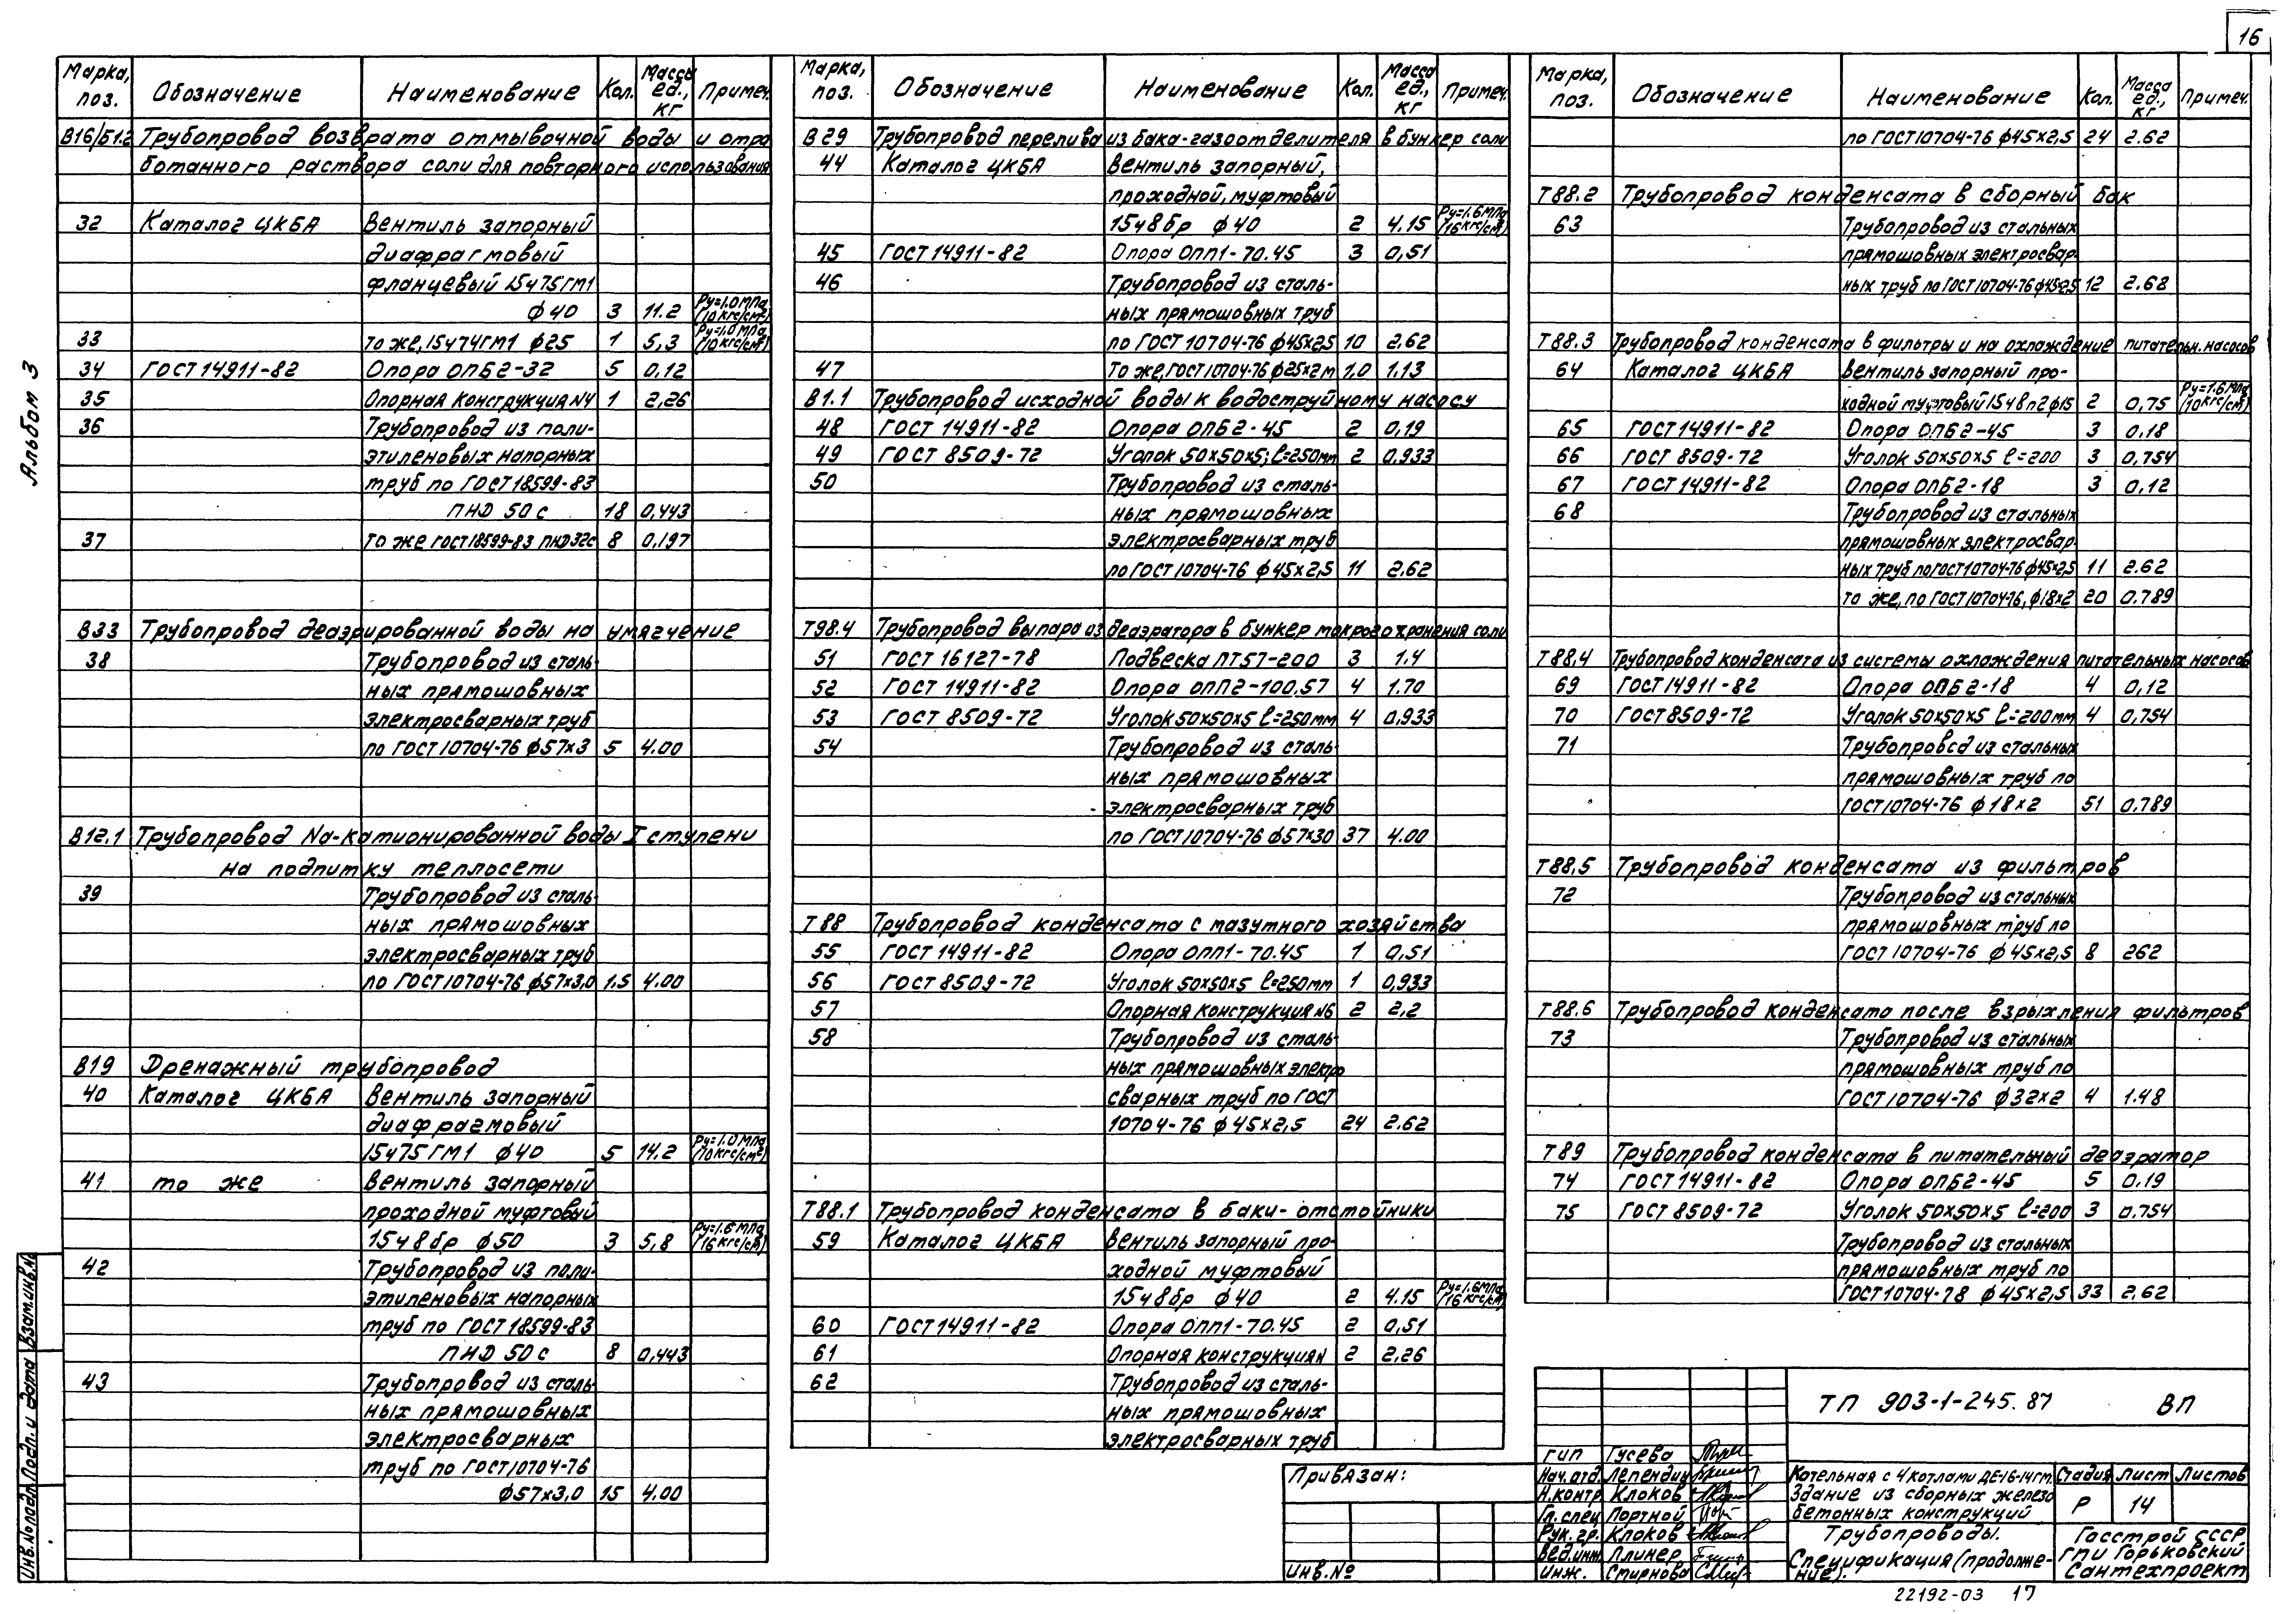 16
Альбом 3
Марка, поз. Обозначение Наименование Кол. Масса ед., кг Примеч.
В16/Б1.2 Трубопровод возврата отмывочной воды и отра
ботанного раствора соли для повторного использования
32 Каталог ЦКБА Вентиль запорный
диафрагмовый
фланцевый 15ч75ГМ1
ф40 3 11.2 Ру=1.0МПа (10кгс/см²)
33 то же, 15ч74ГМ1 ф25 1 5,3 Ру=1.0МПа (10кгс/см²)
34 ГОСТ 14911-82 Опора ОПБ2-32 5 0,12
35 Опорная конструкция N4 1 2,26
36 Трубопровод из поли-
этиленовых напорных
труб по ГОСТ 18599-83
ПНД 50 с 18 0,443
37 то же ГОСТ 18599-83 ПНД 32с 8 0,197
В33 Трубопровод деаэрированной воды на умягчение
38 Трубопровод из сталь-
ных прямошовных
электросварных труб
по ГОСТ 10704-76 ф57х3 5 4.00
В12.1 Трубопровод Na-катионированной воды I ступени
на подпитку теплосети
39 Трубопровод из сталь-
ных прямошовных
электросварных труб
по ГОСТ 10704-76 ф57х3,0 1.5 4.00
В19 Дренажный трубопровод
40 Каталог ЦКБА Вентиль запорный
диафрагмовый
15ч75ГМ1 ф40 5 14.2 Ру=1.0МПа (10кгс/см²)
41 то же Вентиль запорный
проходной муфтовый
15ч8бр ф50 3 5,8 Ру=1.6МПа (16кгс/см²)
42 Трубопровод из поли-
этиленовых напорных
труб по ГОСТ 18599-83
ПНД 50 с 8 0,443
43 Трубопровод из сталь-
ных прямошовных
электросварных
труб по ГОСТ 10704-76
ф57х3,0 15 4.00
Марка, поз. Обозначение Наименование Кол. Масса ед., кг Примеч.
В29 Трубопровод перелива из бака-газоотделителя в бункер соли
44 Каталог ЦКБА Вентиль запорный,
проходной, муфтовый
15ч8бр ф40 2 4.15 Ру=1.6МПа (16кгс/см²)
45 ГОСТ 14911-82 Опора ОПП1-70.45 3 0,51
46 Трубопровод из сталь-
ных прямошовных труб
по ГОСТ 10704-76 ф45х2,5 10 2.62
47 То же, ГОСТ 10704-76 ф25х2 м 1.0 1.13
В1.1 Трубопровод исходной воды к водоструйному насосу
48 ГОСТ 14911-82 Опора ОПБ2-45 2 0,19
49 ГОСТ 8509-72 Уголок 50х50х5; ℓ=250мм 2 0.933
50 Трубопровод из сталь-
ных прямошовных
электросварных труб
по ГОСТ 10704-76 ф45х2,5 11 2.62
Т98.4 Трубопровод выпара из деаэратора в бункер мокрого хранения соли
51 ГОСТ 16127-78 Подвеска ПТ57-200 3 1.4
52 ГОСТ 14911-82 Опора ОПП2-100.57 4 1.70
53 ГОСТ 8509-72 Уголок 50х50х5 ℓ=250мм 4 0,933
54 Трубопровод из сталь-
ных прямошовных
электросварных труб
по ГОСТ 10704-76 ф57х30 37 4.00
Т88 Трубопровод конденсата с мазутного хозяйства
55 ГОСТ 14911-82 Опора ОПП1-70.45 1 0,51
56 ГОСТ 8509-72 Уголок 50х50х5 ℓ=250мм 1 0,933
57 Опорная конструкция N6 2 2,2
58 Трубопровод из сталь-
ных прямошовных электро
сварных труб по ГОСТ
10704-76 ф45х2,5 24 2.62
Т88.1 Трубопровод конденсата в баки-отстойники
59 Каталог ЦКБА Вентиль запорный про-
ходной муфтовый
15ч8бр ф40 2 4.15 Ру=1.6МПа (16кгс/см²)
60 ГОСТ 14911-82 Опора ОПП1-70.45 2 0,51
61 Опорная конструкция 2 2,26
62 Трубопровод из сталь-
ных прямошовных
электросварных труб
Марка, поз. Обозначение Наименование Кол. Масса ед., кг Примеч.
по ГОСТ 10704-76 ф45х2,5 24 2.62
Т88.2 Трубопровод конденсата в сборный бак
63 Трубопровод из стальных
прямошовных электросвар-
ных труб по ГОСТ 10704-76 ф45х2,5 12 2.68
Т88.3 Трубопровод конденсата в фильтры и на охлаждение питательн. насосов
64 Каталог ЦКБА Вентиль запорный про-
ходной муфтовый 15ч8п2 ф15 2 0,75 Ру=1.6МПа (10кгс/см²)
65 ГОСТ 14911-82 Опора ОПБ2-45 3 0.18
66 ГОСТ 8509-72 Уголок 50х50х5 ℓ=200 3 0,754
67 ГОСТ 14911-82 Опора ОПБ2-18 3 0,12
68 Трубопровод из стальных
прямошовных электросвар-
ных труб по ГОСТ 10704-76 ф45х2,5 11 2.62
то же, по ГОСТ 10704-76, ф18х2 20 0.789
Т88.4 Трубопровод конденсата из системы охлаждения питательных насосов
69 ГОСТ 14911-82 Опора ОПБ2-18 4 0,12
70 ГОСТ 8509-72 Уголок 50х50х5 ℓ=200мм 4 0,754
71 Трубопровод из стальных
прямошовных труб по
ГОСТ 10704-76 ф18х2 51 0.789
Т88.5 Трубопровод конденсата из фильтров
72 Трубопровод из стальных
прямошовных труб по
ГОСТ 10704-76 ф45х2,5 8 262
Т88.6 Трубопровод конденсата после взрыхления фильтров
73 Трубопровод из стальных
прямошовных труб по
ГОСТ 10704-76 ф32х2 4 1.48
Т89 Трубопровод конденсата в питательный деаэратор
74 ГОСТ 14911-82 Опора ОПБ2-45 5 0.19
75 ГОСТ 8509-72 Уголок 50х50х5 ℓ=200 3 0.754
Трубопровод из стальных
прямошовных труб по
ГОСТ 10704-78 ф45х2,5 33 2,62
Привязан:
Инв.№
ТП 903-1-245.87 ВП
ГИП Гусева
Нач.отд. Лепендин
Н.контр. Клоков
Гл.спец Портной
Рук.гр. Клоков
Вед.инж. Плинер
Инж. Смирнова
Котельная с 4 котлами ДЕ-16-14ГМ.
Здание из сборных железо
бетонных конструкций
Стадия Лист Листов
Р 14
Трубопроводы.
Спецификация (продолже-
ние).
Госстрой СССР
ГПИ Горьковский
Сантехпроект
22192-03 17
Инв.№ подл. Подп. и дата Взам.инв.№